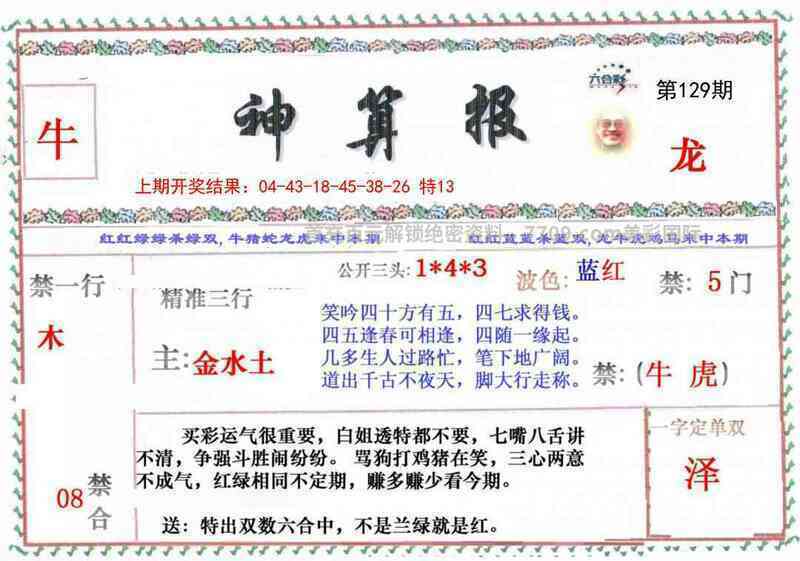 六合彩
第129期
牛
神算报
龙
上期开奖结果：04-43-18-45-38-26 特13
红红绿绿杀绿双,牛猪蛇龙虎来中本期
解锁绝密资料
7709.com美彩国际
红红蓝蓝杀蓝双,龙牛虎鸡马来中本期
禁一行
木
精准三行
主:金水土
公开三头:1*4*3
波色:蓝红
禁:5门
笑吟四十方有五，四七求得钱。
四五逢春可相逢，四随一缘起。
几多生人过路忙，笔下地广阔。
道出千古不夜天，脚大行走称。
禁:(牛 虎)
08禁合
买彩运气很重要，白姐透特都不要，七嘴八舌讲
不清，争强斗胜闹纷纷。 骂狗打鸡猪在笑，三心两意
不成气，红绿相同不定期，赚多赚少看今期。
送：特出双数六合中，不是兰绿就是红。
一字定单双
泽